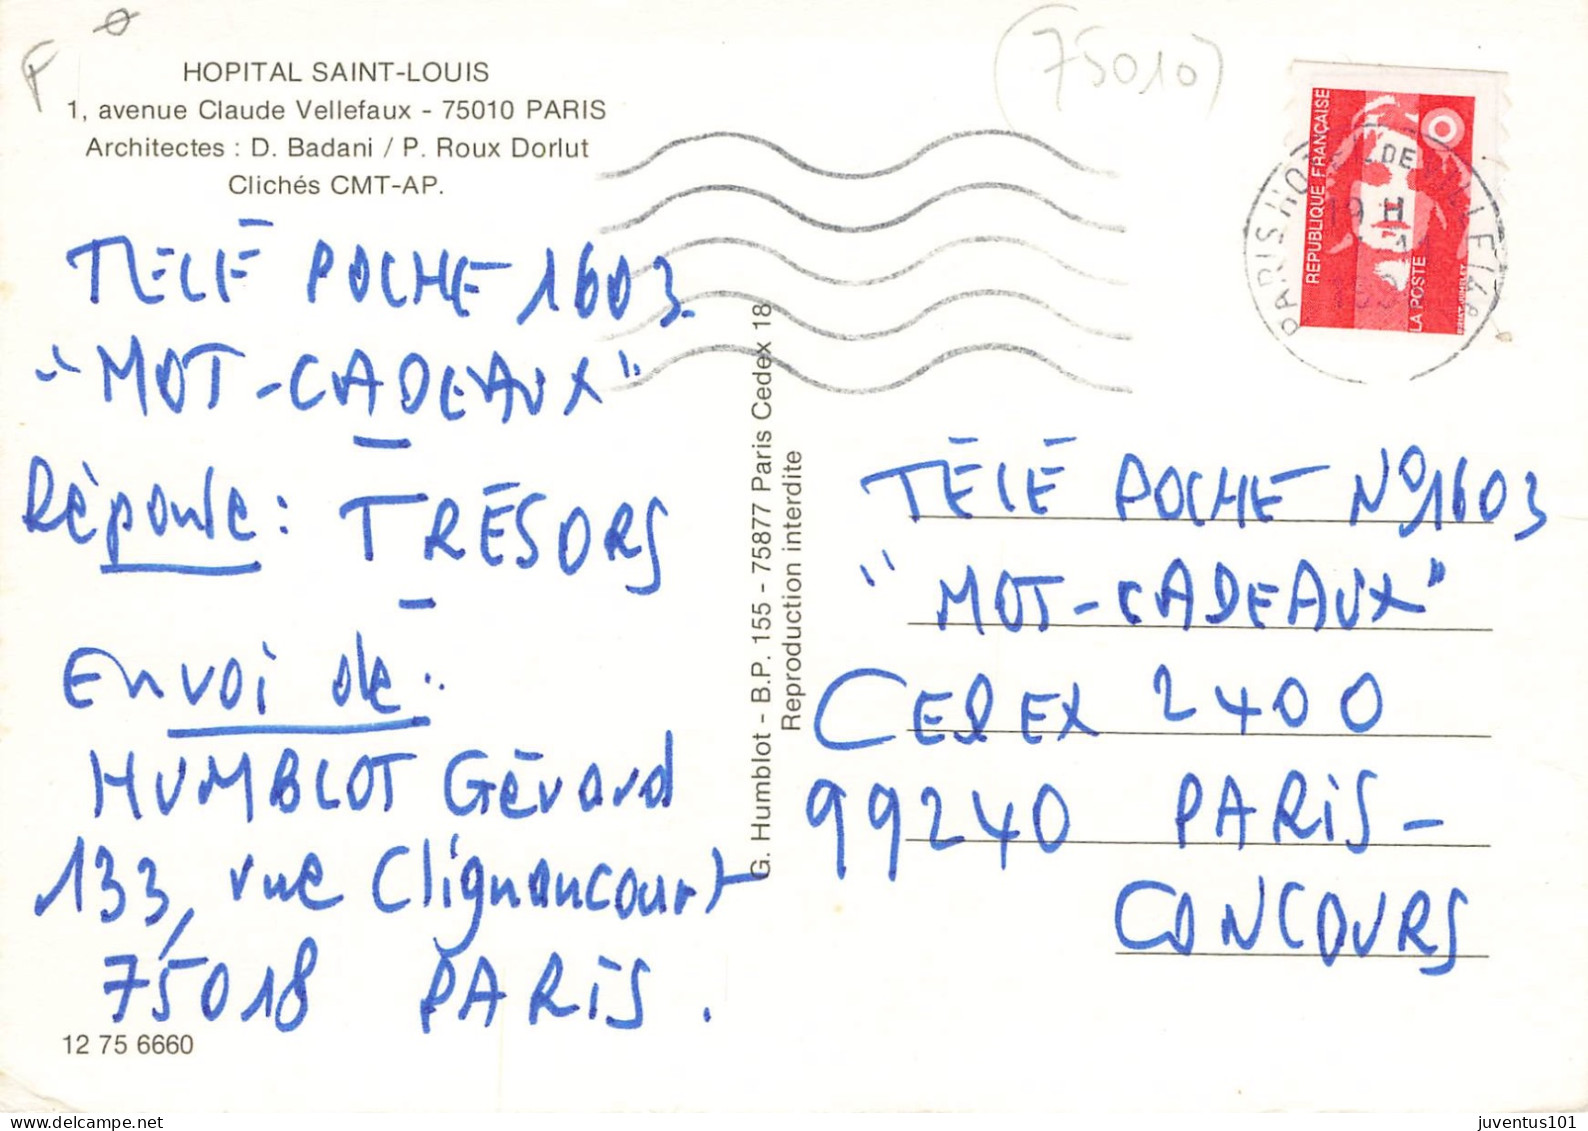 F
(75010)
HOPITAL SAINT-LOUIS
1, avenue Claude Vellefaux - 75010 PARIS
Architectes : D. Badani / P. Roux Dorlut
Clichés CMT-AP.
RÉPUBLIQUE FRANÇAISE
LA POSTE
PARIS HO DE VILLE
19 H
TÉLÉ POCHE 1603.
"MOT-CADEAUX"
Réponse : TRÉSORS
Envoi de :
HUMBLOT Gérard
133, rue Clignancourt
75018 PARIS.
12 75 6660
G. Humblot - B.P. 155 - 75877 Paris Cedex 18
Reproduction interdite
TÉLÉ POCHE N°1603
"MOT-CADEAUX"
CEDEX 2400
99240 PARIS-
CONCOURS
juventus101